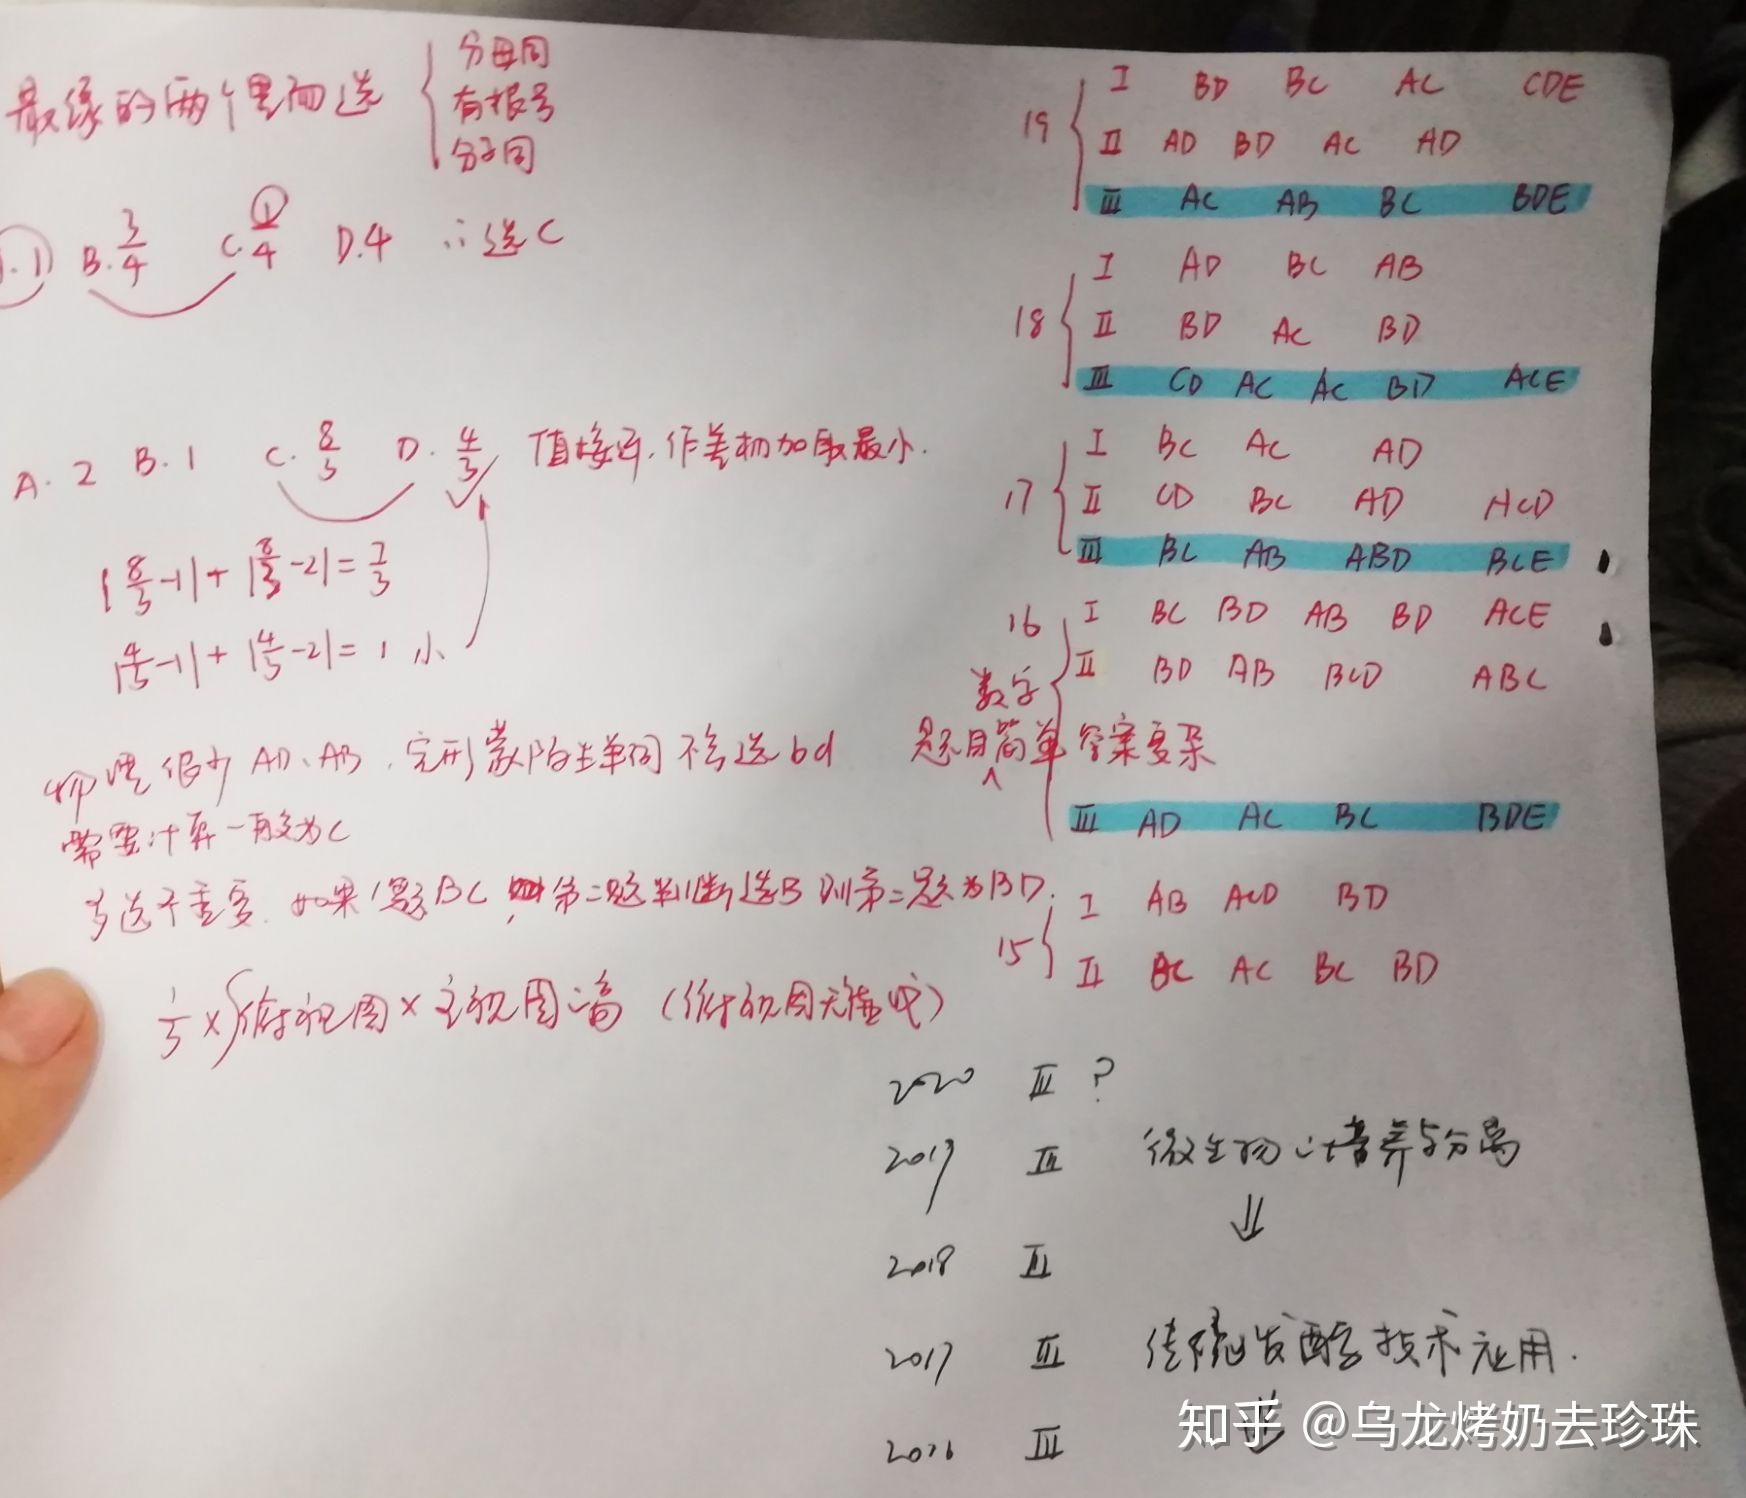 最缘的两个里面选
分母同
有根号
分子同
.1) B. 3/4 C. 1/4 D.4 ∴选C
A. 2 B. 1 C. 8/3 D. 4/3 值接近,作差相加取最小.
|8/3-1|+|8/3-2|=7/3
|4/3-1|+|4/3-2|=1 小
物理很少AD、AB,完形蒙陌生单词不会选bd
需要计算一般为C
多选不重复.如果1题BC,第二题判断选B则第二题为BD.
1/3×∫俯视图×主视图高(俯视图无虚线)
19
I BD BC AC CDE
II AD BD AC AD
III AC AB BC BDE
18
I AD BC AB
II BD AC BD
III CD AC AC BD ACE
17
I BC AC AD
II CD BC AD ACD
III BC AB ABD BCE
16
I BC BD AB BD ACE
II BD AB BCD ABC
数字
题目简单 答案复杂
III AD AC BC BDE
15
I AB ACD BD
II BC AC BC BD
2020 III ?
2019 III 微生物培养与分离
⇓
2018 II
2017 III 传统发酵技术应用.
2016 III
知乎 @乌龙烤奶去珍珠